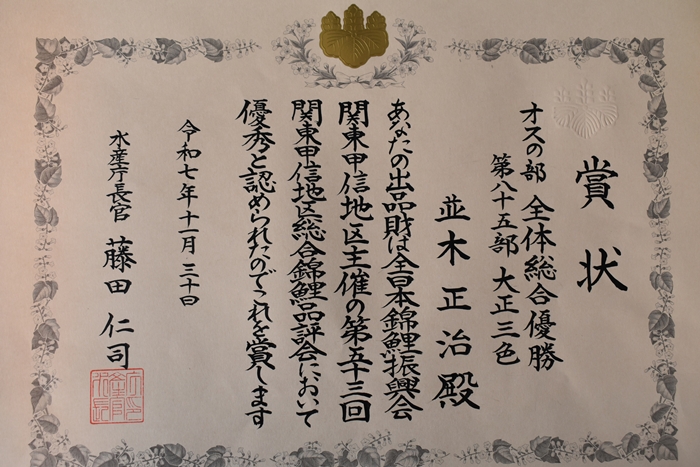 賞状
オスの部 全体総合優勝
第八十五部 大正三色
並木正治殿
あなたの出品財は全日本錦鯉振興会
関東甲信地区主催の第五十三回
関東甲信地区総合錦鯉品評会において
優秀と認められたのでこれを賞します
令和七年十一月三十日
水産庁長官 藤田仁司